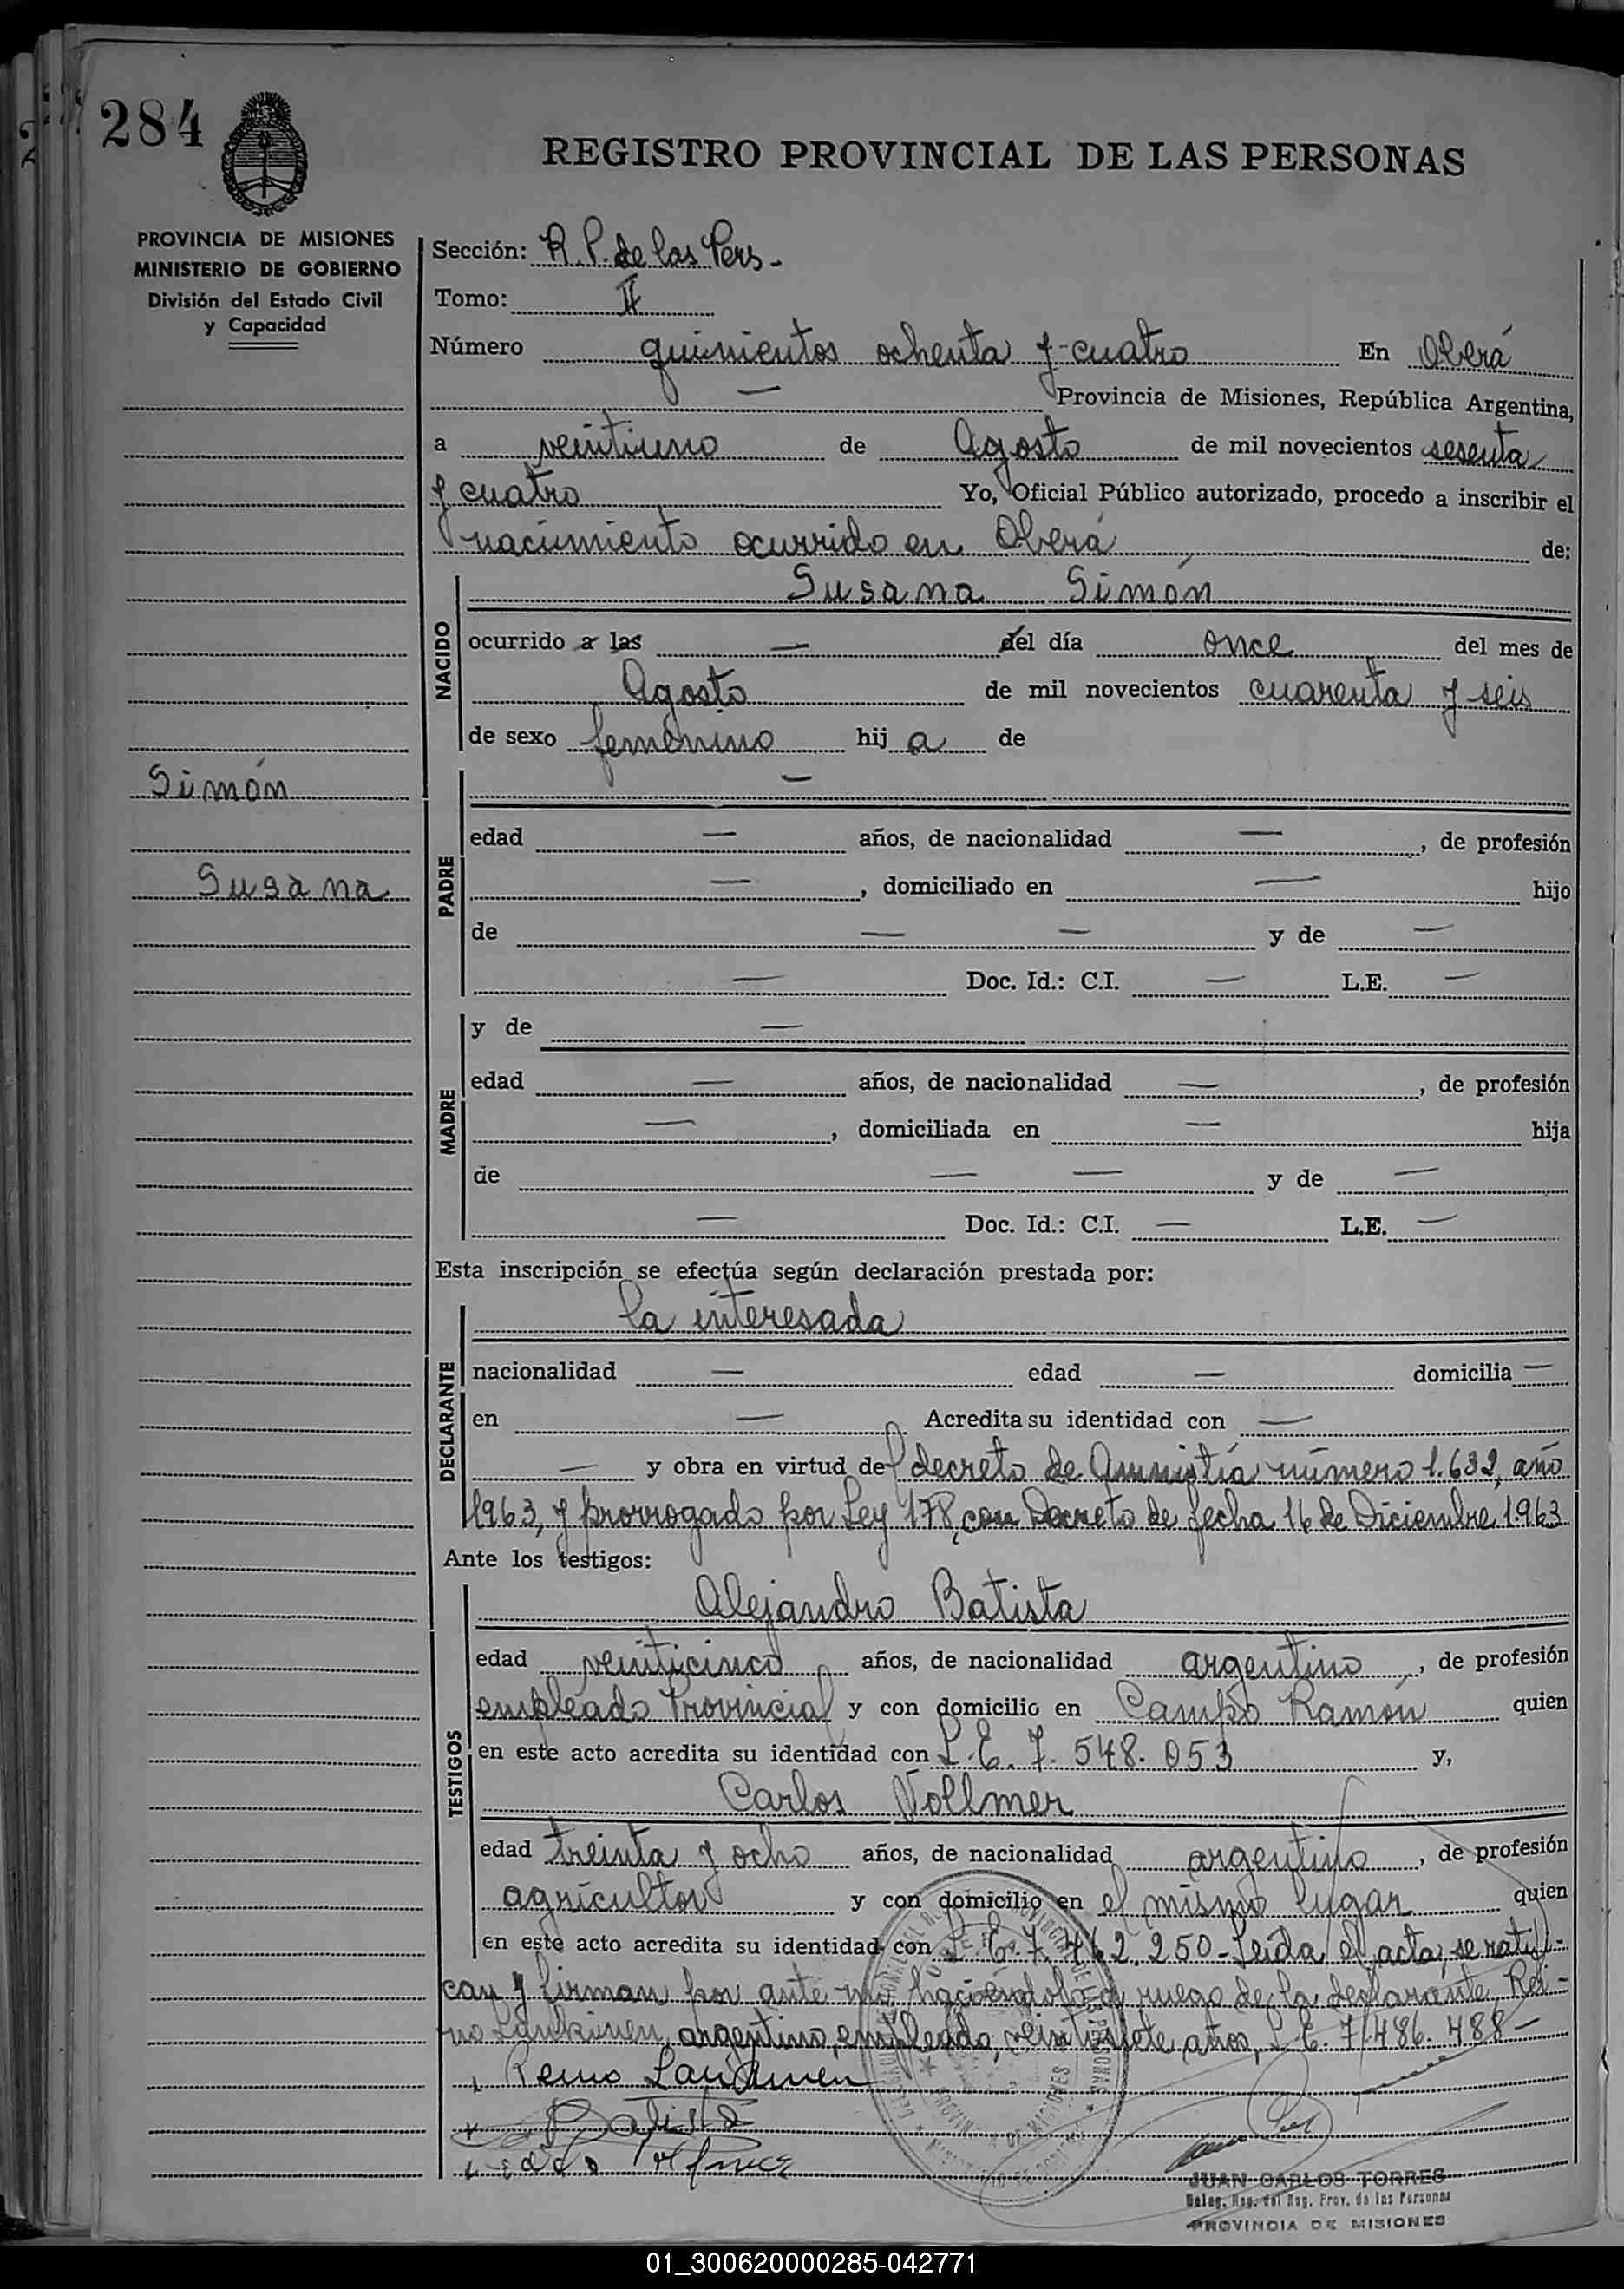 284
REGISTRO PROVINCIAL DE LAS PERSONAS
PROVINCIA DE MISIONES
MINISTERIO DE GOBIERNO
División del Estado Civil
y Capacidad
Sección: R. P. de las Pers.-
Tomo: II
Número quinientos ochenta y cuatro En Oberá
— Provincia de Misiones, República Argentina,
a veintiuno de Agosto de mil novecientos sesenta
y cuatro Yo, Oficial Público autorizado, procedo a inscribir el
nacimiento ocurrido en Oberá de:
NACIDO
Susana Simón
ocurrido a las — del día once del mes de
Agosto de mil novecientos cuarenta y seis
de sexo femenino hij a de
Simón
Susana
PADRE
—
edad — años, de nacionalidad —, de profesión
—, domiciliado en — hijo
de — — y de —
— Doc. Id.: C.I. — L.E. —
MADRE
y de —
edad — años, de nacionalidad —, de profesión
—, domiciliada en — hija
de — — y de —
— Doc. Id.: C.I. — L.E. —
Esta inscripción se efectúa según declaración prestada por:
DECLARANTE
la interesada
nacionalidad — edad — domicilia —
en — Acredita su identidad con —
— y obra en virtud del decreto de Amnistía número 1.632, año
1963, y prorrogado por Ley 178, con Decreto de fecha 16 de Diciembre 1963
Ante los testigos:
TESTIGOS
Alejandro Batista
edad veinticinco años, de nacionalidad argentino, de profesión
empleado Provincial y con domicilio en Campo Ramón quien
en este acto acredita su identidad con L. E. 7. 548. 053 y,
Carlos Vollmer
edad treinta y ocho años, de nacionalidad argentino, de profesión
agricultor y con domicilio en el mismo lugar quien
en este acto acredita su identidad con L. E. 7. 462. 250- Leída el acta, se ratifi-
can y firman por ante mí haciéndolo a ruego de la declarante Rei-
no argentino, empleado, veintisiete años, L. E. 7.486. 488-
Batista
JUAN CARLOS TORRES
Deleg. Reg. del Reg. Prov. de las Personas
PROVINCIA DE MISIONES
01_300620000285-042771